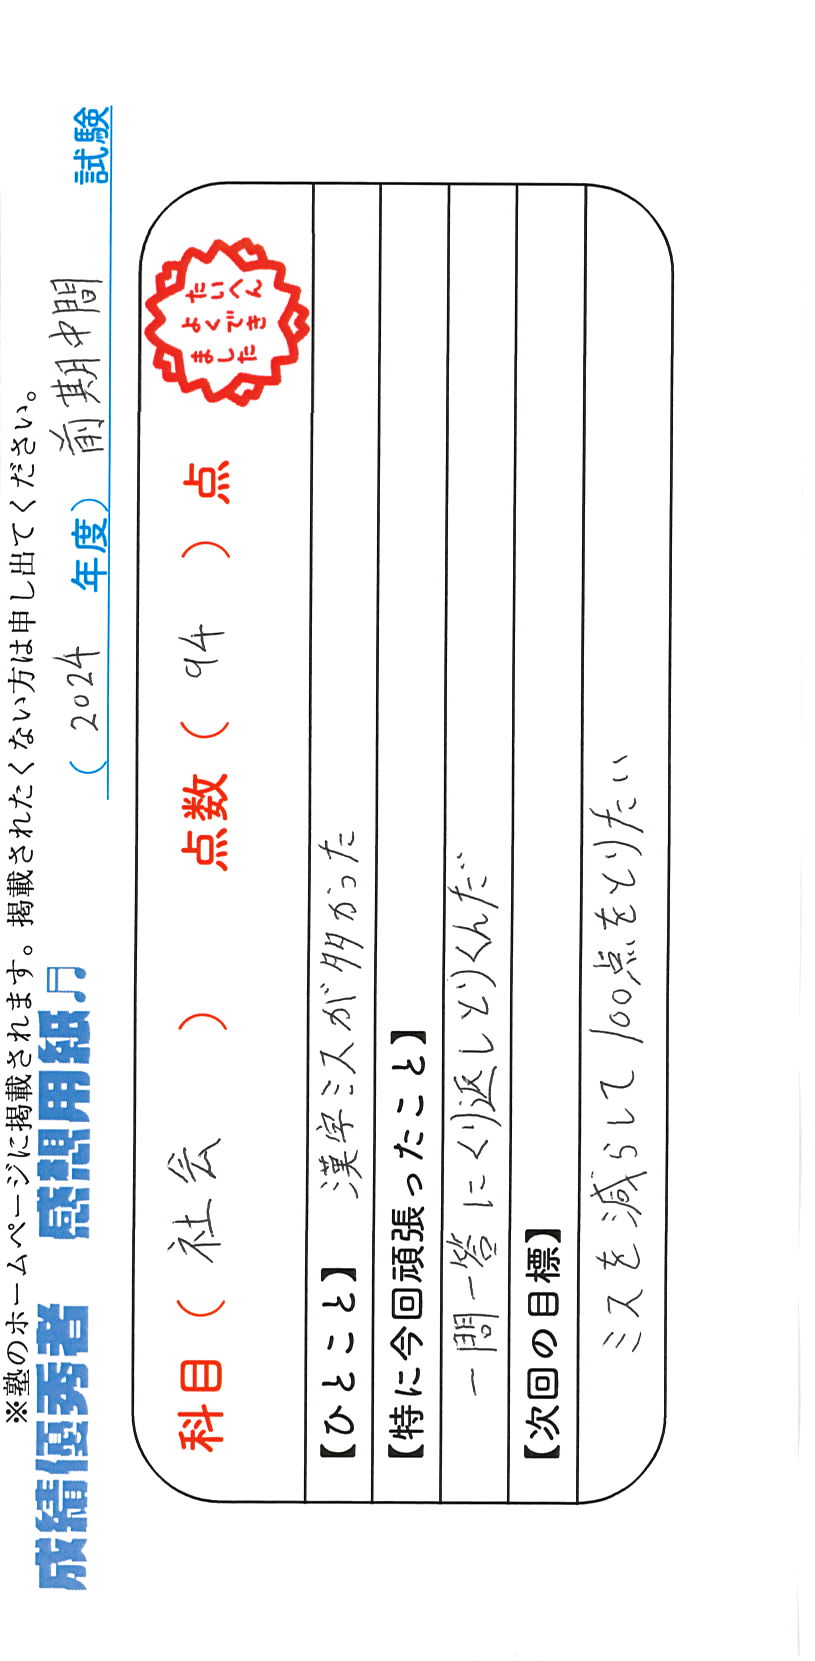 ※塾のホームページに掲載されます。掲載されたくない方は申し出てください。
成績優秀者 感想用紙♫
(2024 年度) 前期中間 試験
科目( 社会 ) 点数( 94 )点
たいへん
よくでき
ました
【ひとこと】 漢字ミスが多かった
【特に今回頑張ったこと】
一問一答にくり返しとりくんだ
【次回の目標】
ミスを減らして100点をとりたい